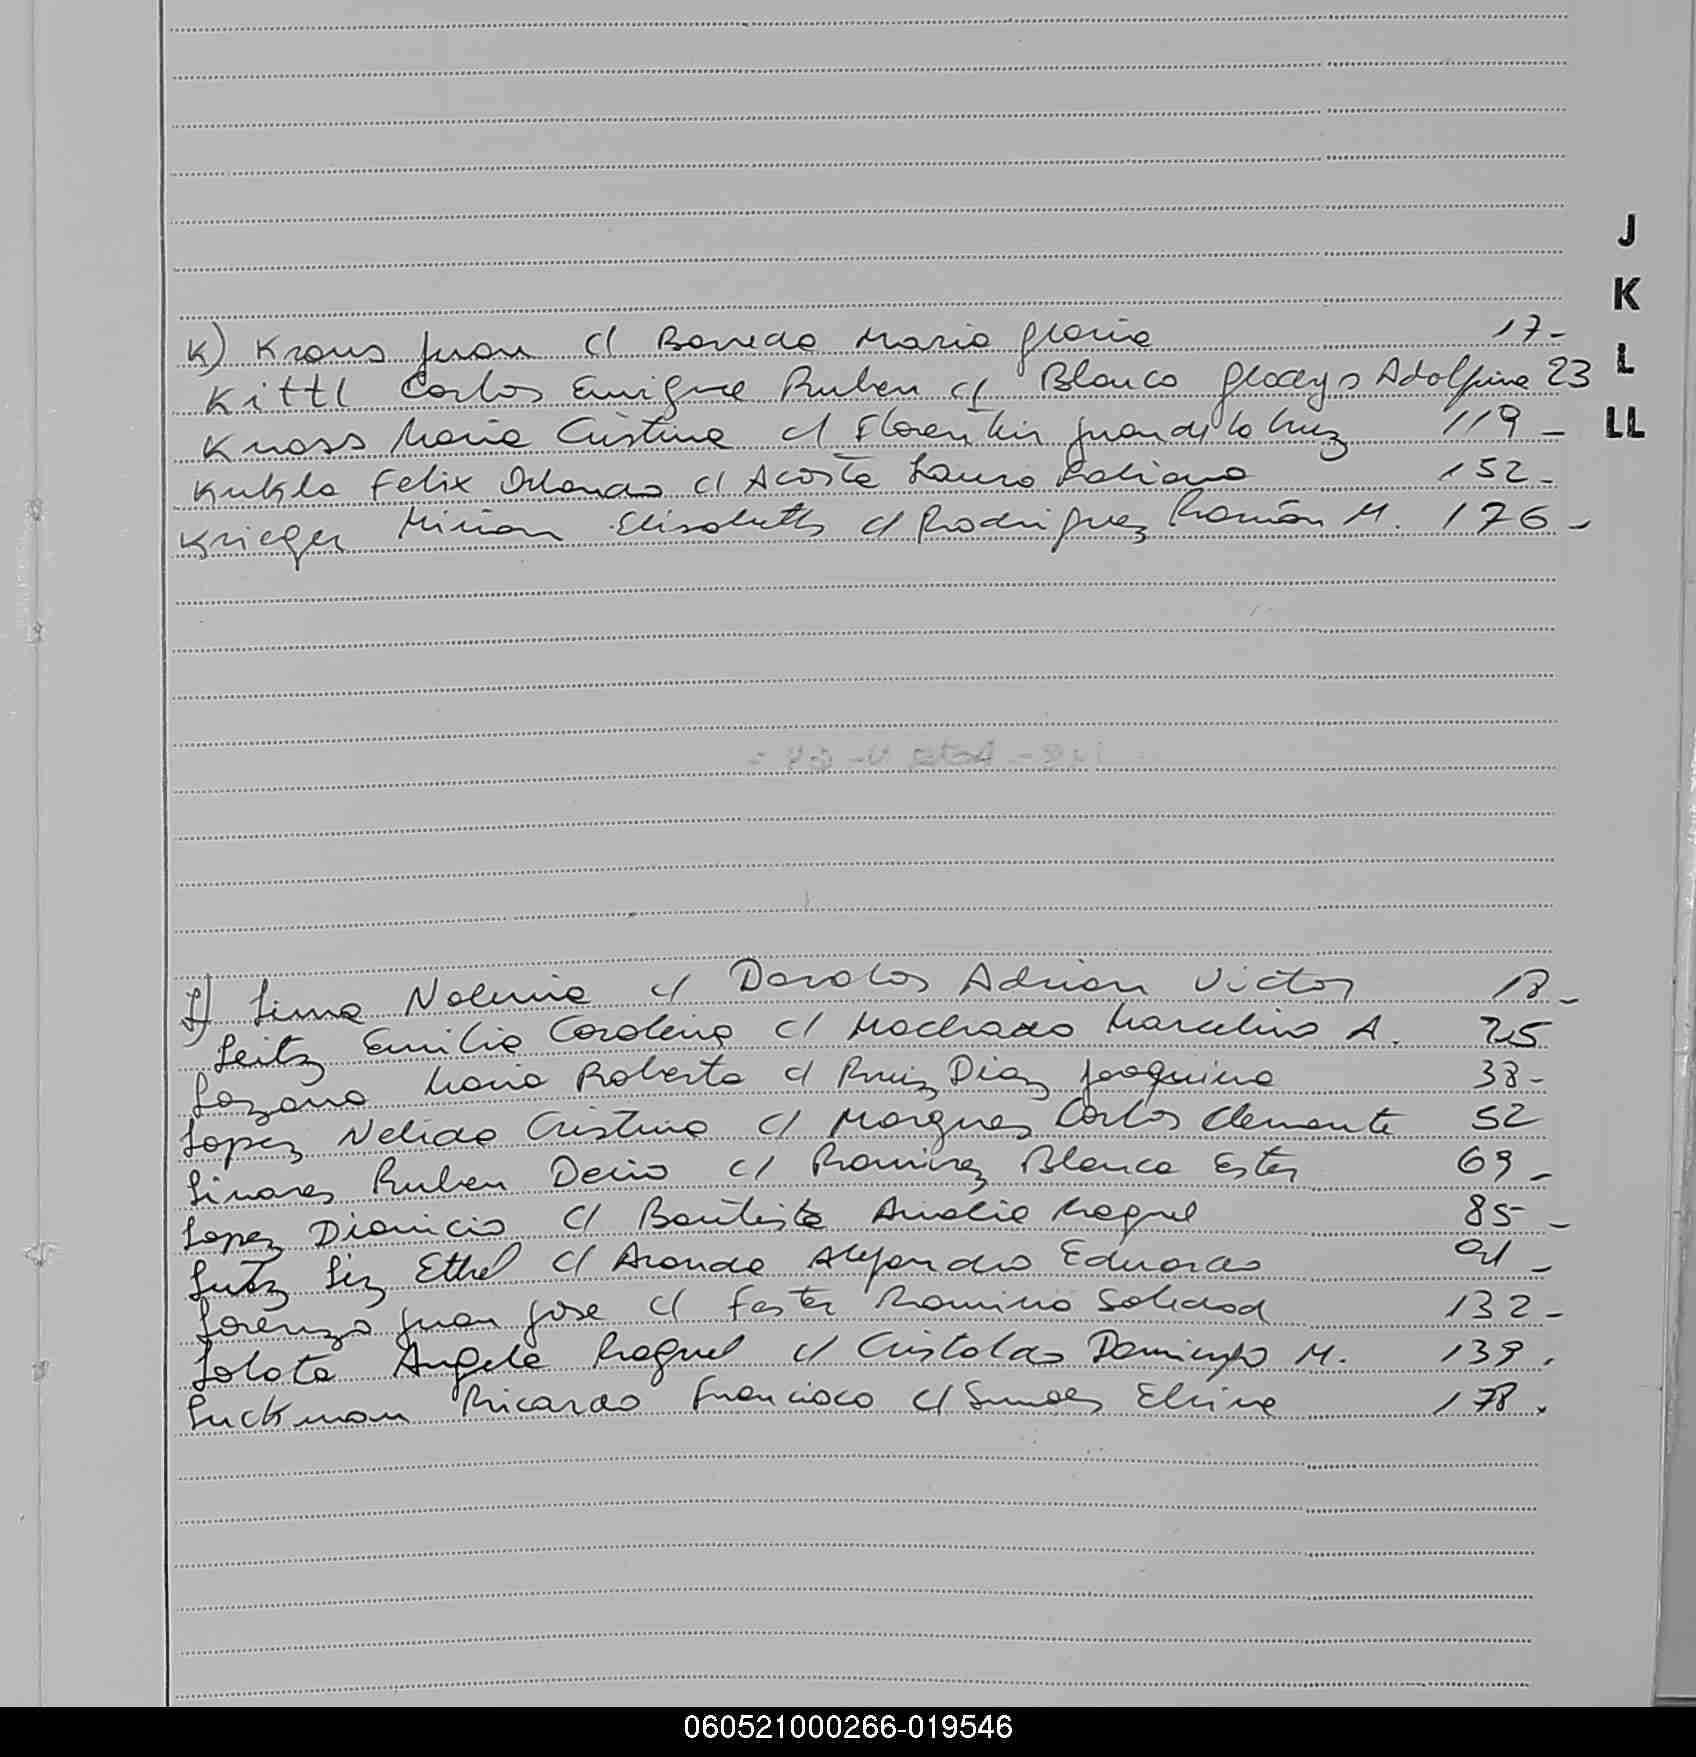 J
K
L
LL
K) Kraus Juan c/ Barredo Maria Gloria 17-
Kittl Carlos Enrique Ruben c/ Blanco Gladys Adolfina 23
Knass Maria Cristina c/ Florentin Juan de la Cruz 119-
Kukla Felix Orlando c/ Acosta Laura 152-
Krieger Mirian Elisabeth c/ Rodriguez Ramón M. 176-
L) Lima Noemia c/ Davalos Adrian Victor 18-
Leitz Emilia Carolina c/ Machado Marcelino A. 25
Lozano Maria Roberta c/ Ruiz Diaz Joaquina 38-
Lopez Nelida Cristina c/ Marques Carlos Clemente 52
Linares Ruben Dario c/ Ramirez Blanca Ester 69-
Lopez Dionicio c/ Bautista Amalia Raquel 85-
Lutz Liz Ethel c/ Aranda Alejandro Eduardo 91-
Lorenzo Juan Jose c/ Soledad 132-
Lolota Angela Raquel c/ Domingo M. 139.
Luckman Ricardo Francisco c/ 178.
060521000266-019546